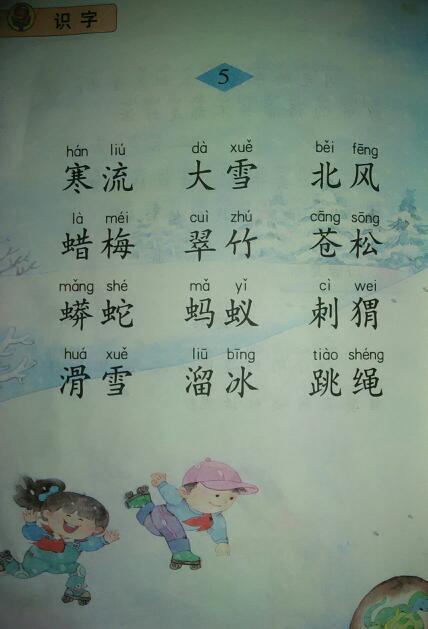 识字
5
hán liú dà xuě běi fēng
寒流 大雪 北风
là méi cuì zhú cāng sōng
蜡梅 翠竹 苍松
mǎng shé mǎ yǐ cì wei
蟒蛇 蚂蚁 刺猬
huá xuě liū bīng tiào shéng
滑雪 溜冰 跳绳